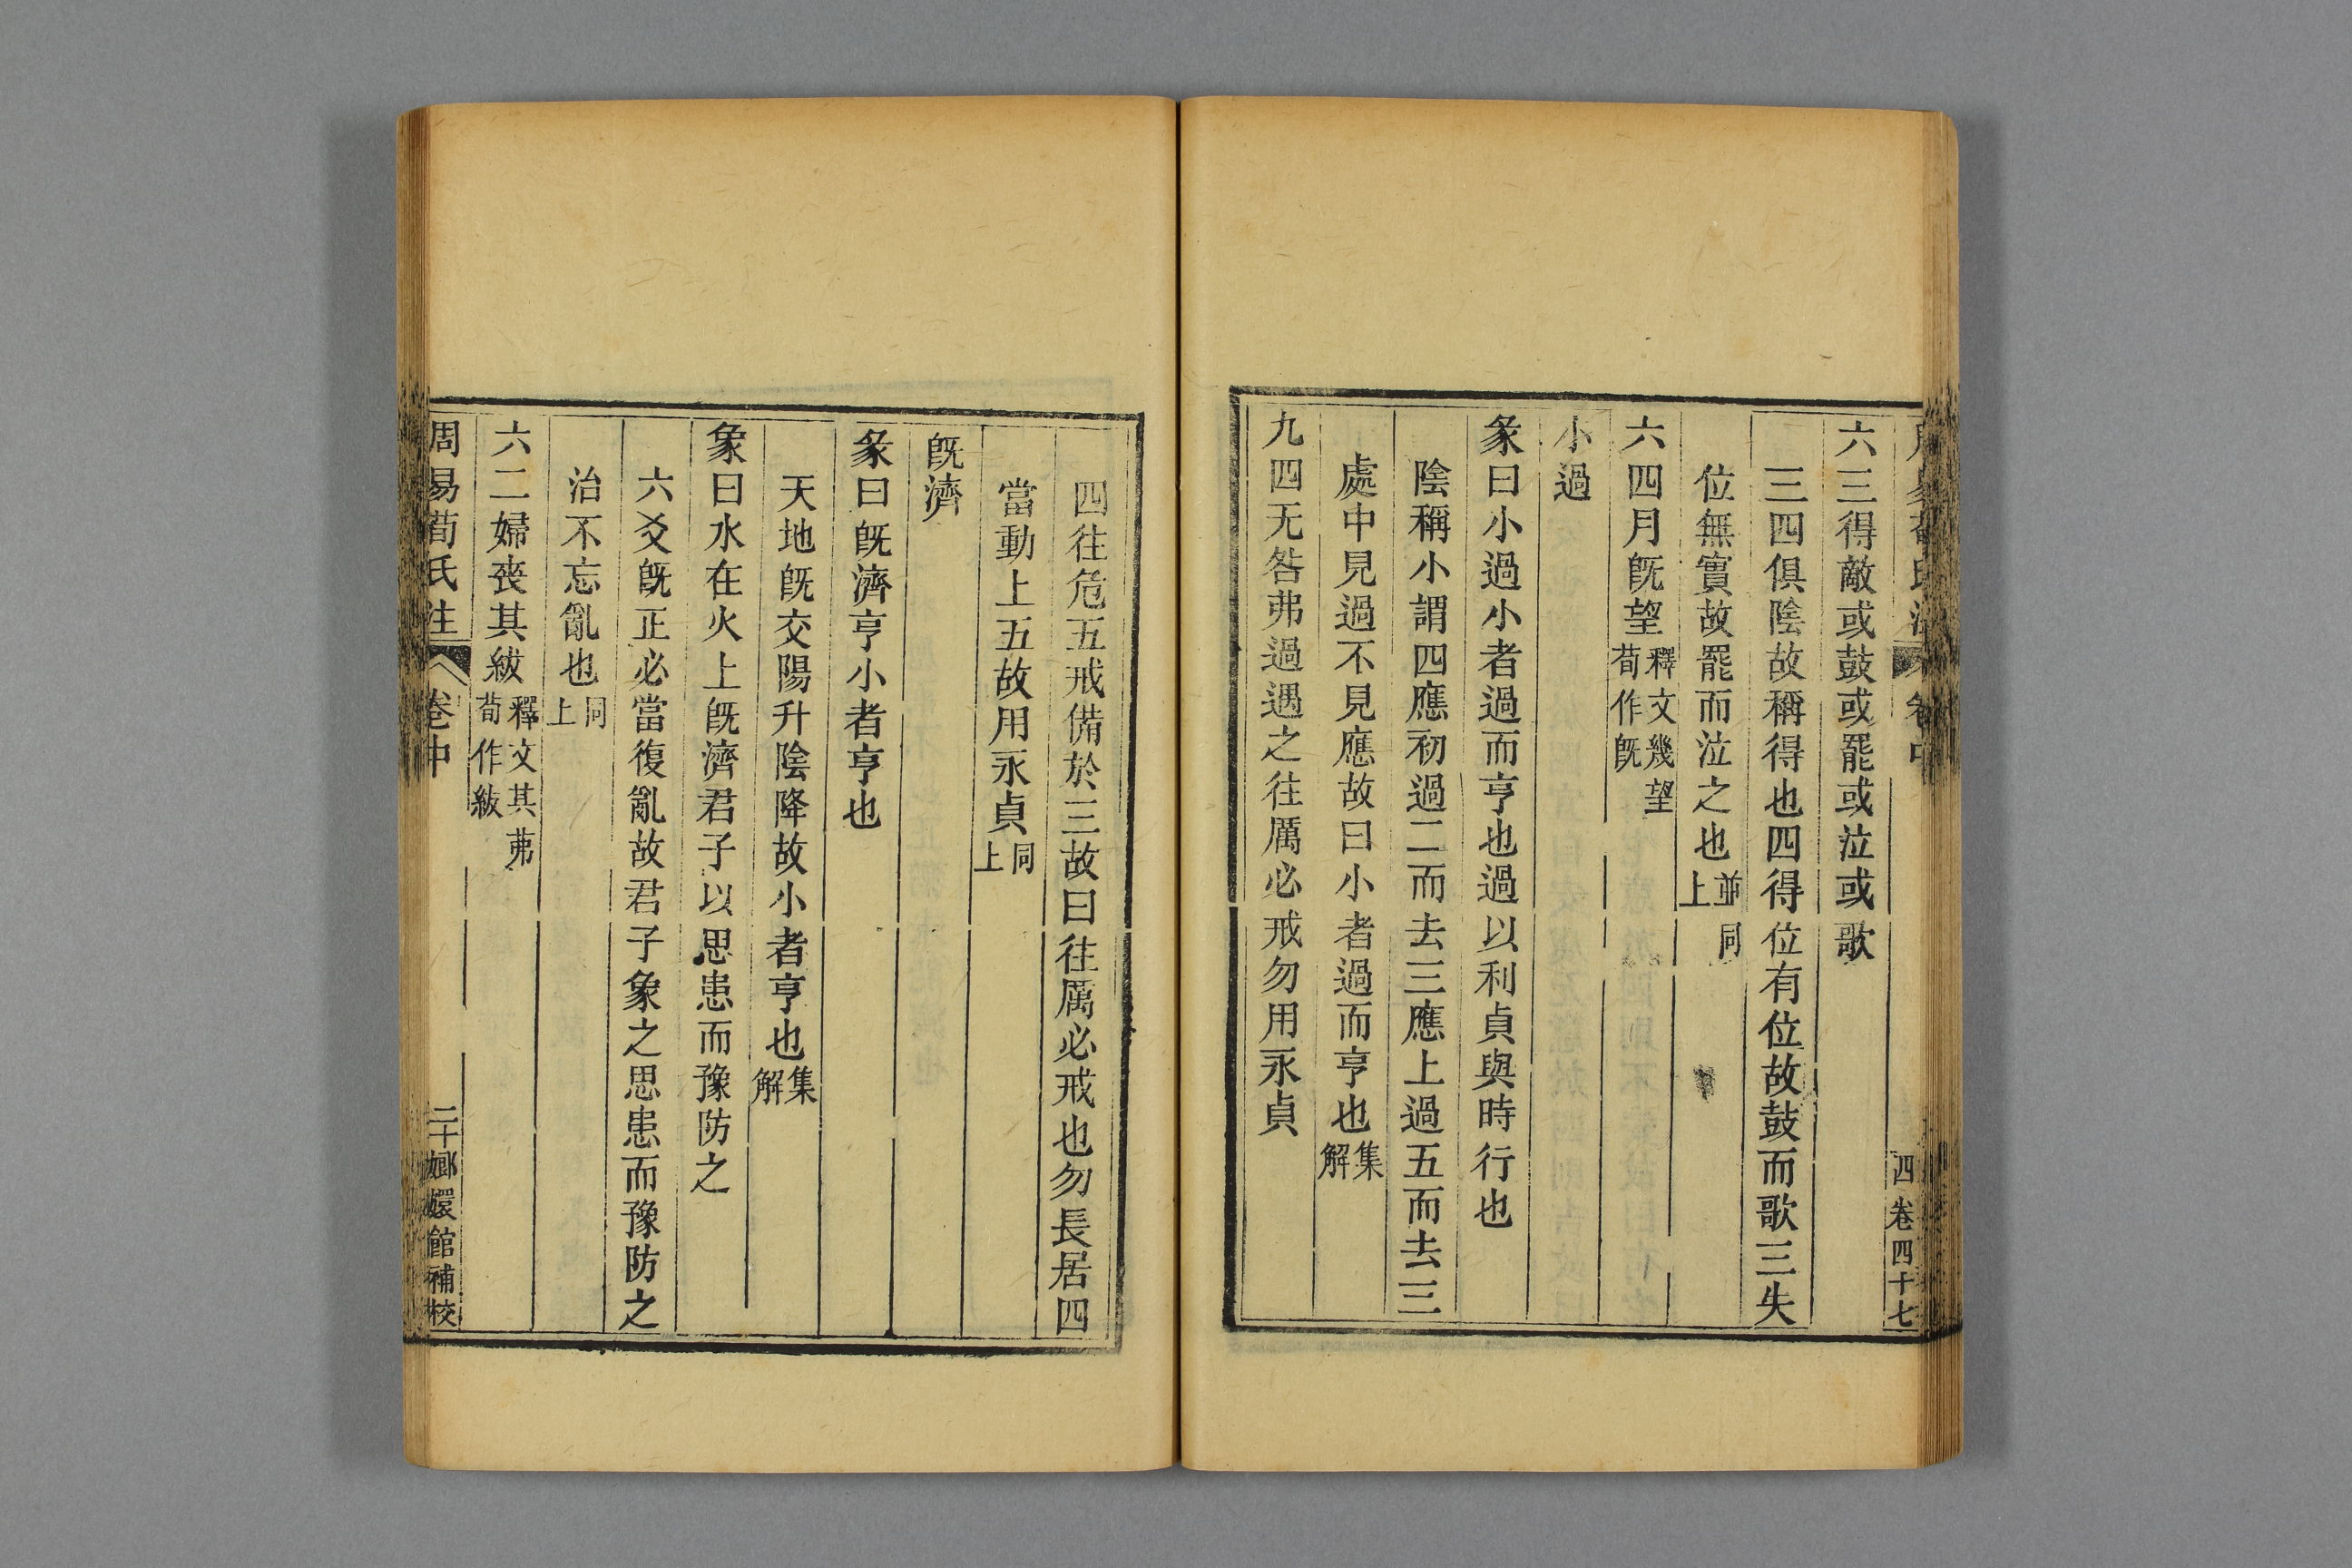 四 卷四十七
六三得敵或鼓或罷或泣或歌
三四俱陰故稱得也四得位有位故鼓而歌三失
位無實故罷而泣之也並同上
六四月旣望釋文幾望荀作旣
小過
彖曰小過小者過而亨也過以利貞與時行也
陰稱小謂四應初過二而去三應上過五而去三
處中見過不見應故曰小者過而亨也集解
九四无咎弗過遇之往厲必戒勿用永貞
四往危五戒備於三故曰往厲必戒也勿長居四
當動上五故用永貞同上
旣濟
彖曰旣濟亨小者亨也
天地旣交陽升陰降故小者亨也集解
象曰水在火上旣濟君子以思患而豫防之
六爻旣正必當復亂故君子象之思患而豫防之
治不忘亂也同上
六二婦喪其紱釋文其茀荀作紱
周易荀氏注 卷中 二十 嫏嬛館補校